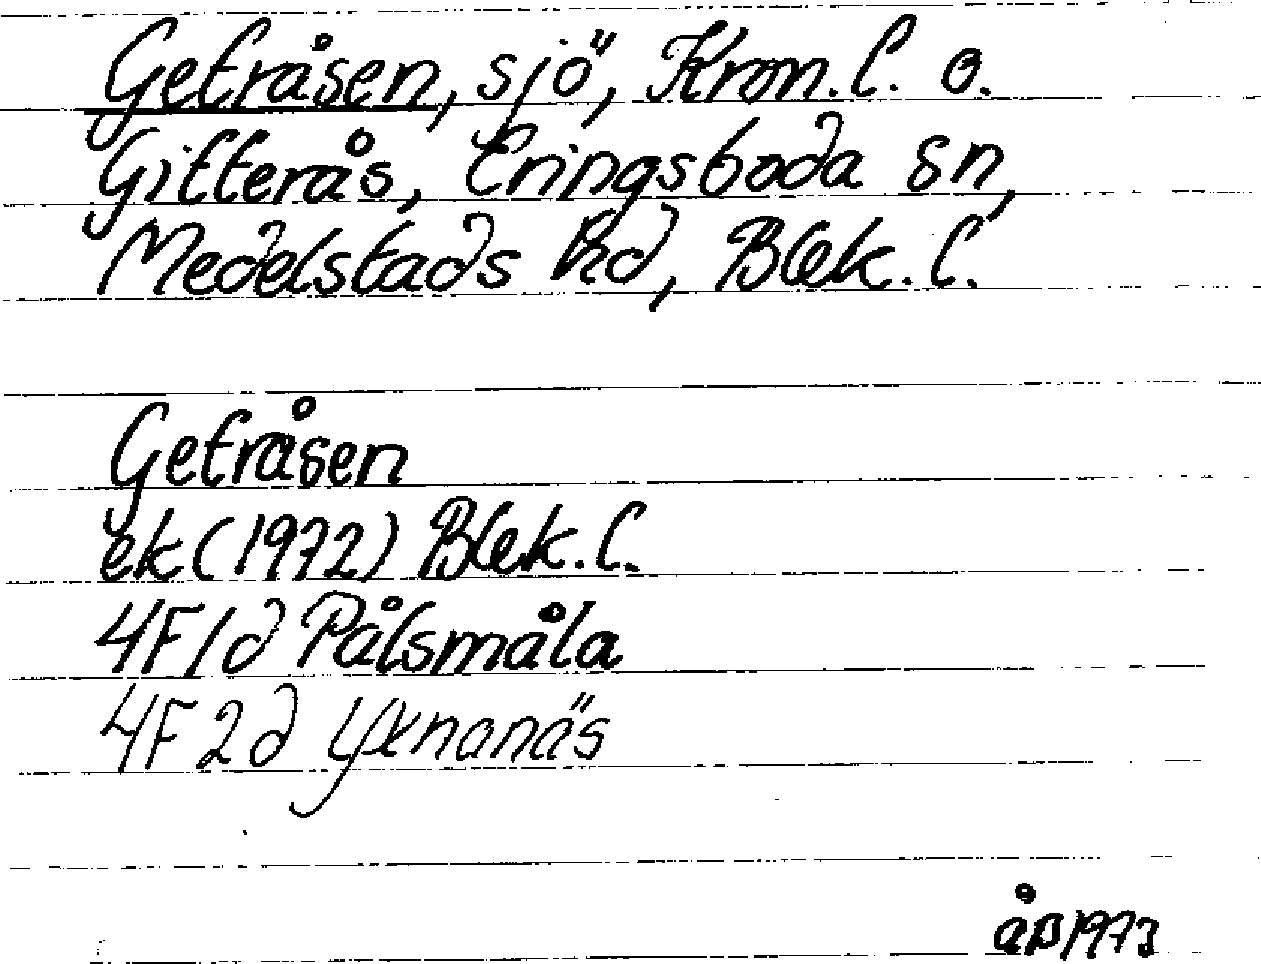 Getråsen, sjö, Kron.l. o.
Gitterås, Eringsboda sn,
Medelstads hd, Blek.l.
Getråsen
ek (1972) Blek.l.
4F1d Pålsmåla
4F2d Yxnanäs
åB 1973